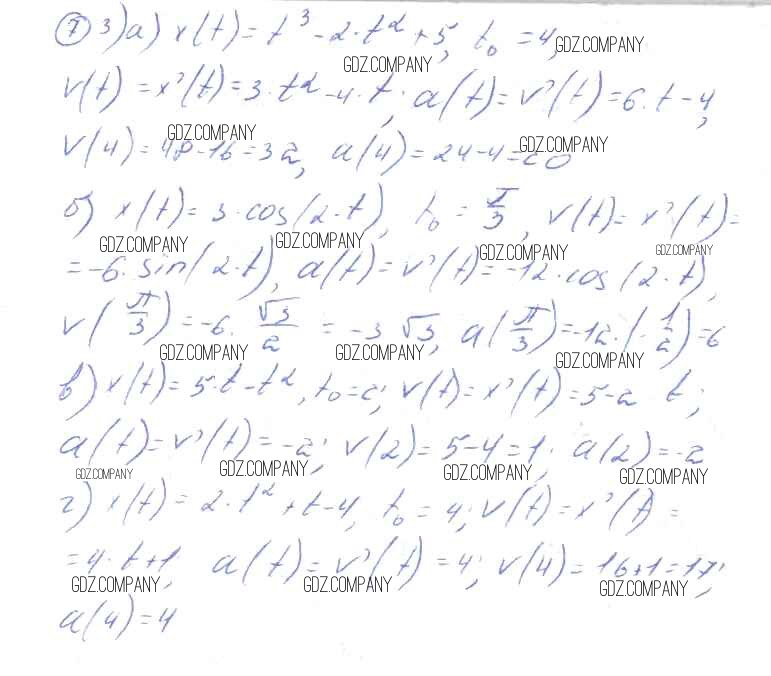 ① 3) а) x(t) = t³ - 2·t² + 5, t₀ = 4, GDZ.COMPANY
GDZ.COMPANY
v(t) = x'(t) = 3·t² - 4·t, a(t) = v'(t) = 6·t - 4,
GDZ.COMPANY GDZ.COMPANY
v(4) = 48 - 16 = 32, a(4) = 24 - 4 = 20
б) x(t) = 3·cos(2·t), t₀ = π/3, v(t) = x'(t) =
GDZ.COMPANY GDZ.COMPANY GDZ.COMPANY GDZ.COMPANY
= -6·sin(2·t), a(t) = v'(t) = -12·cos(2·t),
v(π/3) = -6·√3/2 = -3√3, a(π/3) = -12·(-1/2) = 6
GDZ.COMPANY GDZ.COMPANY GDZ.COMPANY
в) x(t) = 5·t - t², t₀ = 2; v(t) = x'(t) = 5 - 2 t;
a(t) = v'(t) = -2; v(2) = 5 - 4 = 1; a(2) = -2
GDZ.COMPANY GDZ.COMPANY GDZ.COMPANY GDZ.COMPANY
г) x(t) = 2·t² + t - 4, t₀ = 4; v(t) = x'(t) =
= 4·t + 1, a(t) = v'(t) = 4; v(4) = 16 + 1 = 17;
GDZ.COMPANY GDZ.COMPANY GDZ.COMPANY
a(4) = 4